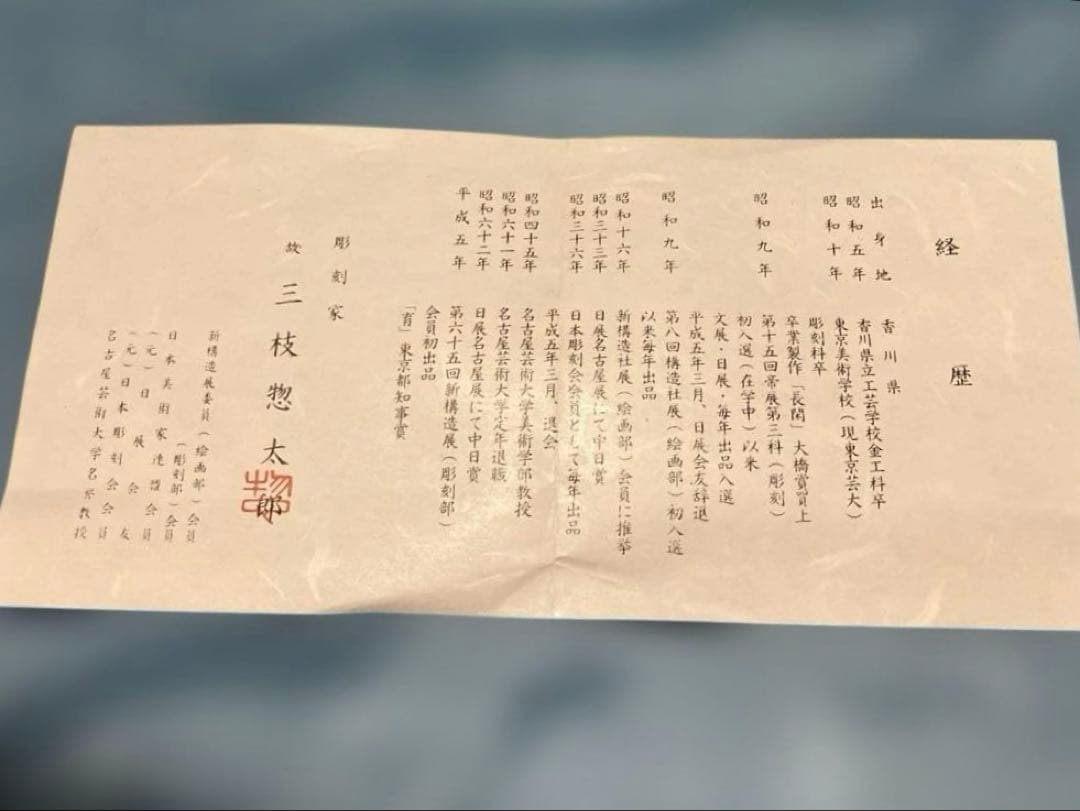 経歴
出身地 香川県
昭和五年 香川県立工芸学校金工科卒
昭和十年 東京美術学校(現東京芸大)
彫刻科卒
卒業製作「長閑」大橋賞買上
昭和九年 第十五回帝展第三科(彫刻)
初入選(在学中)以来
文展・日展・毎年出品入選
平成五年三月、日展会友辞退
昭和九年 第八回構造社展(絵画部)初入選
以来毎年出品
昭和十六年 新構造社展(絵画部)会員に推挙
昭和三十三年 日展名古屋展にて中日賞
昭和三十六年 日本彫刻会会員として毎年出品
平成五年三月、退会
昭和四十五年 名古屋芸術大学美術学部教授
昭和六十一年 名古屋芸術大学定年退職
昭和六十二年 日展名古屋展にて中日賞
平成五年 第六十五回新構造展(彫刻部)
会員初出品
「育」東京都知事賞
彫刻家
故 三枝惣太郎
新構造展委員(絵画部)会員
(彫刻部)会員
日本美術家連盟会員
(元)日展会友
(元)日本彫刻会会員
名古屋芸術大学名誉教授